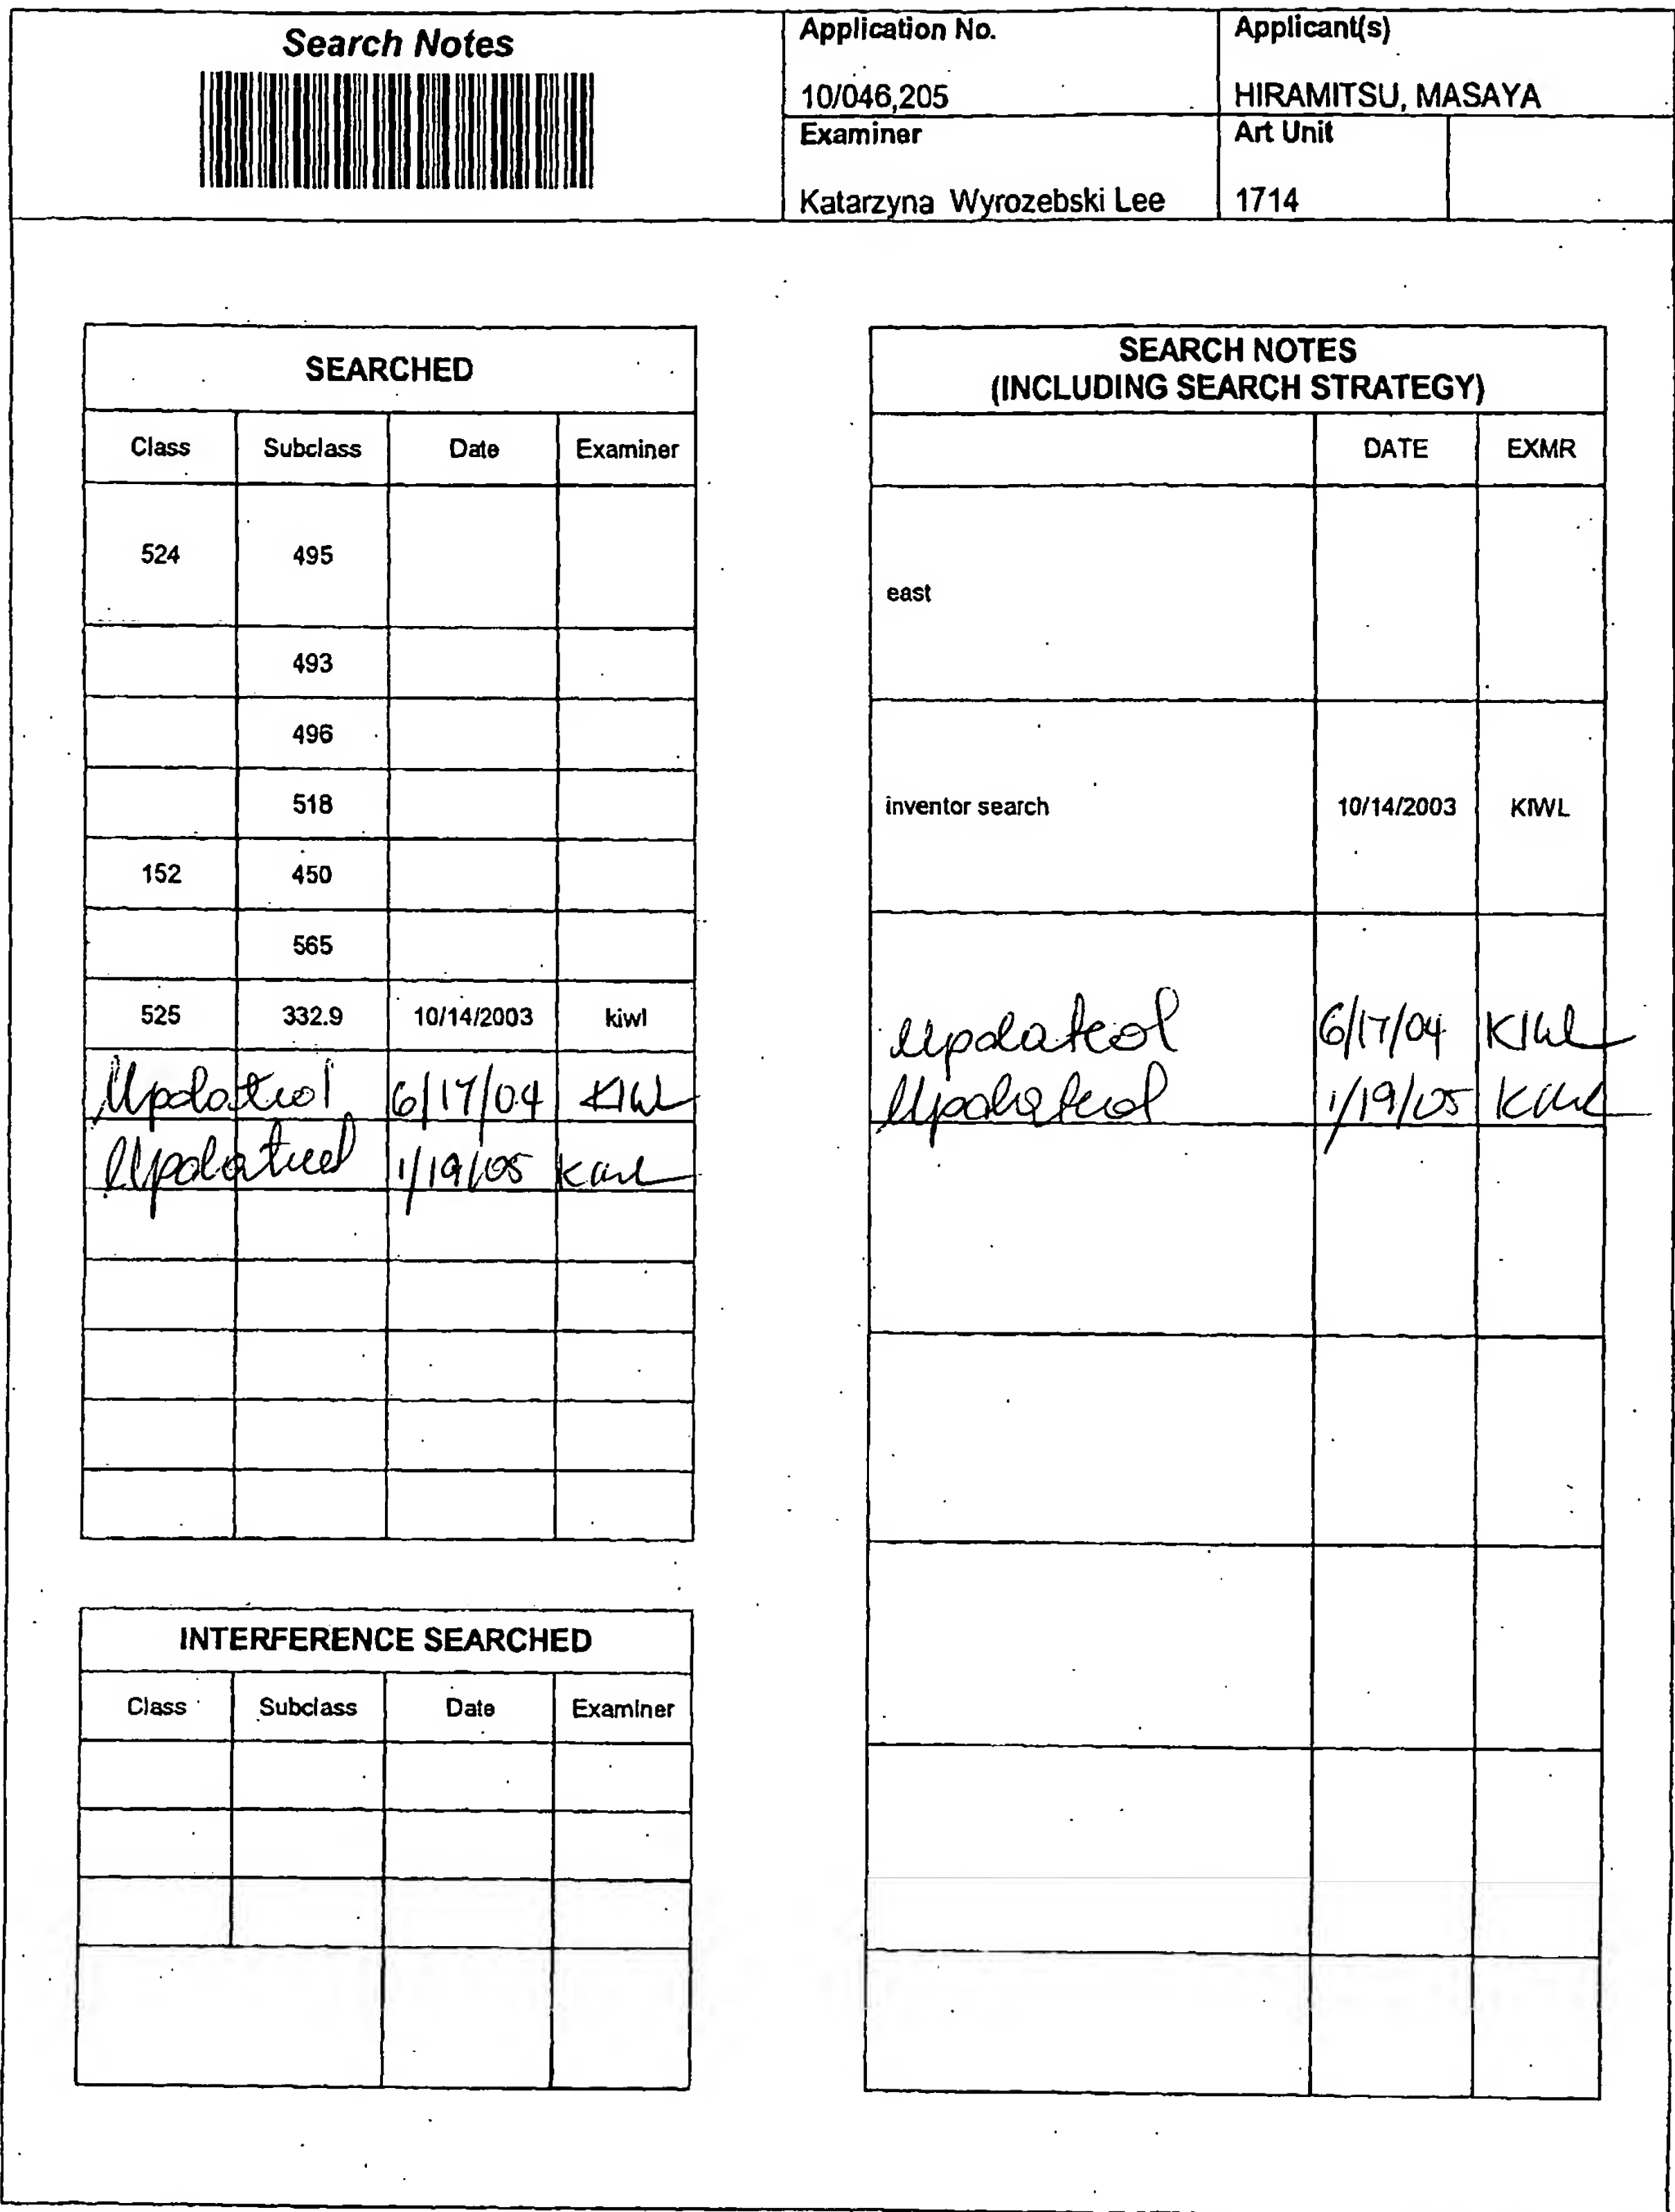 Search Notes
Application No.
10/046,205
Applicant(s)
HIRAMITSU, MASAYA
Examiner
Katarzyna Wyrozebski Lee
Art Unit
1714
SEARCHED
Class Subclass Date Examiner
524 495
493
496
518
152 450
565
525 332.9 10/14/2003 kiwl
Updated 6/17/04 KIWL
Updated 1/19/05 KIWL
INTERFERENCE SEARCHED
Class Subclass Date Examiner
SEARCH NOTES
(INCLUDING SEARCH STRATEGY)
DATE EXMR
east
inventor search 10/14/2003 KIWL
Updated 6/17/04 KIWL
Updated 1/19/05 KIWL